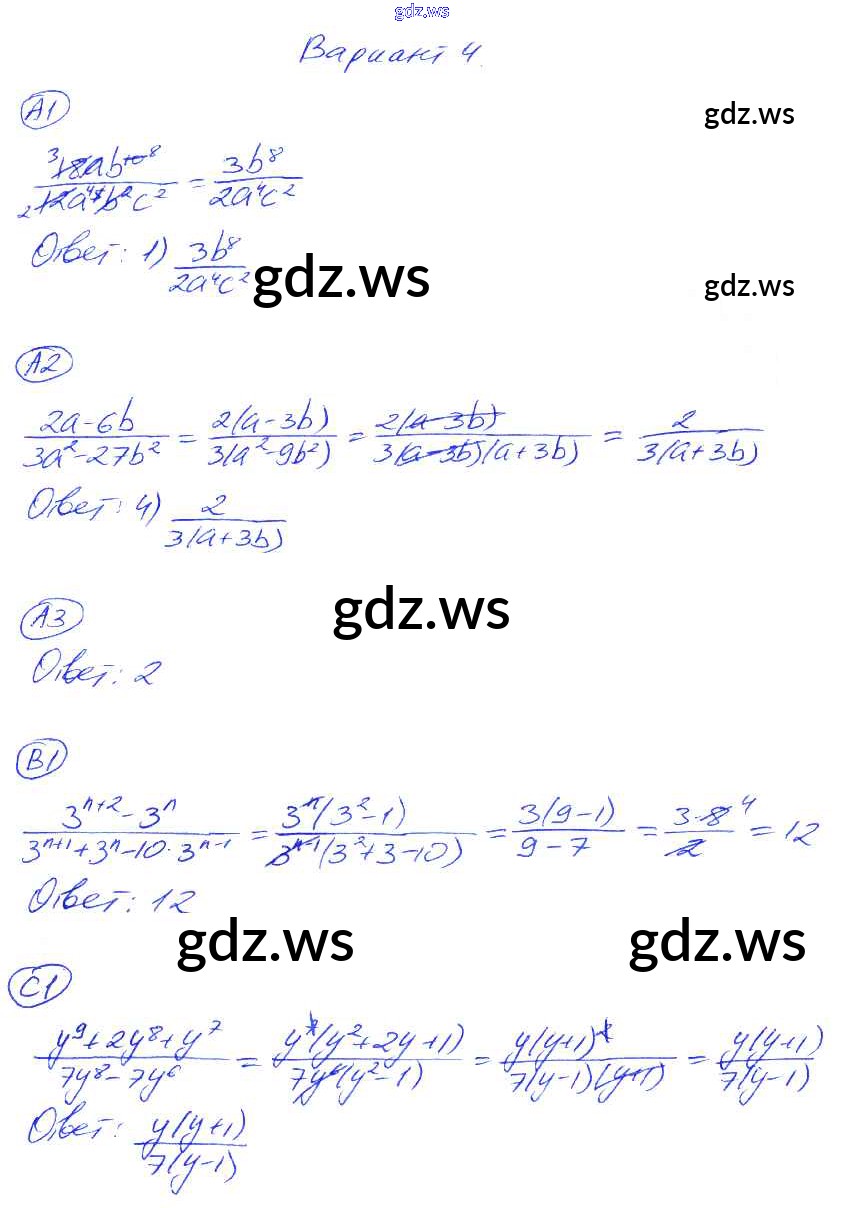 gdz.ws
Вариант 4.
gdz.ws
A1
18ab^10 / 12a^5b^2c^2 = 3b^8 / 2a^4c^2
Ответ: 1) 3b^8 / 2a^4c^2
gdz.ws
gdz.ws
A2
(2a-6b) / (3a^2-27b^2) = 2(a-3b) / 3(a^2-9b^2) = 2(a-3b) / 3(a-3b)(a+3b) = 2 / 3(a+3b)
Ответ: 4) 2 / 3(a+3b)
gdz.ws
A3
Ответ: 2
B1
(3^(n+2) - 3^n) / (3^(n+1) + 3^n - 10·3^(n-1)) = 3^n(3^2-1) / 3^(n-1)(3^2+3-10) = 3(9-1) / (9-7) = 3·8 4 / 2 = 12
Ответ: 12
gdz.ws
gdz.ws
C1
(y^9+2y^8+y^7) / (7y^8-7y^6) = y^7(y^2+2y+1) / 7y^6(y^2-1) = y(y+1)^2 / 7(y-1)(y+1) = y(y+1) / 7(y-1)
Ответ: y(y+1) / 7(y-1)